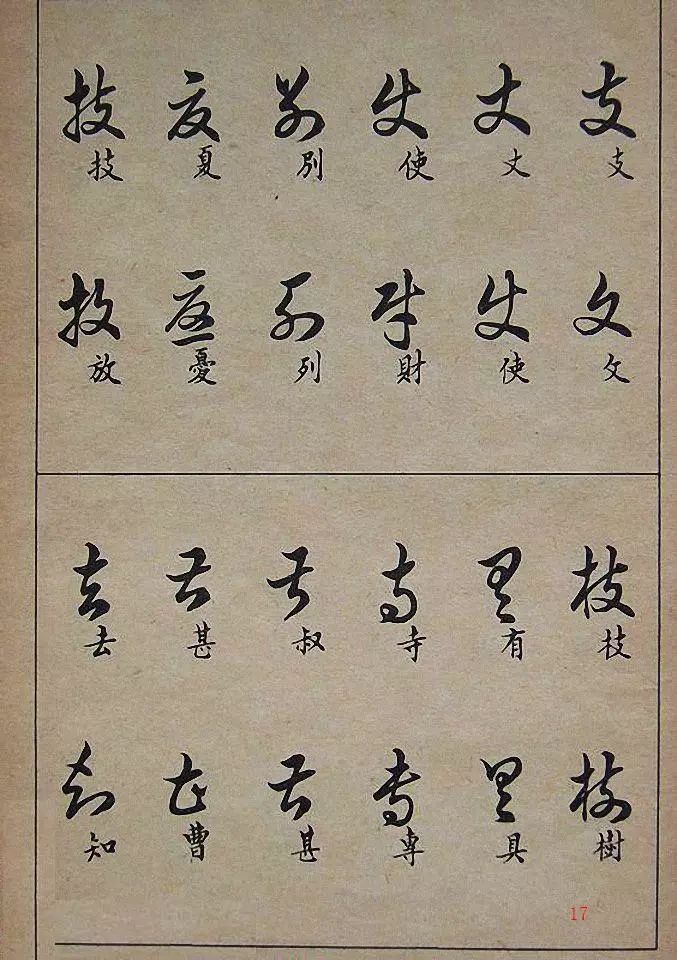 支 丈 使 別 夏 技
文 使 財 列 憂 放
枝 有 寺 叔 甚 去
樹 具 專 甚 曹 知
17